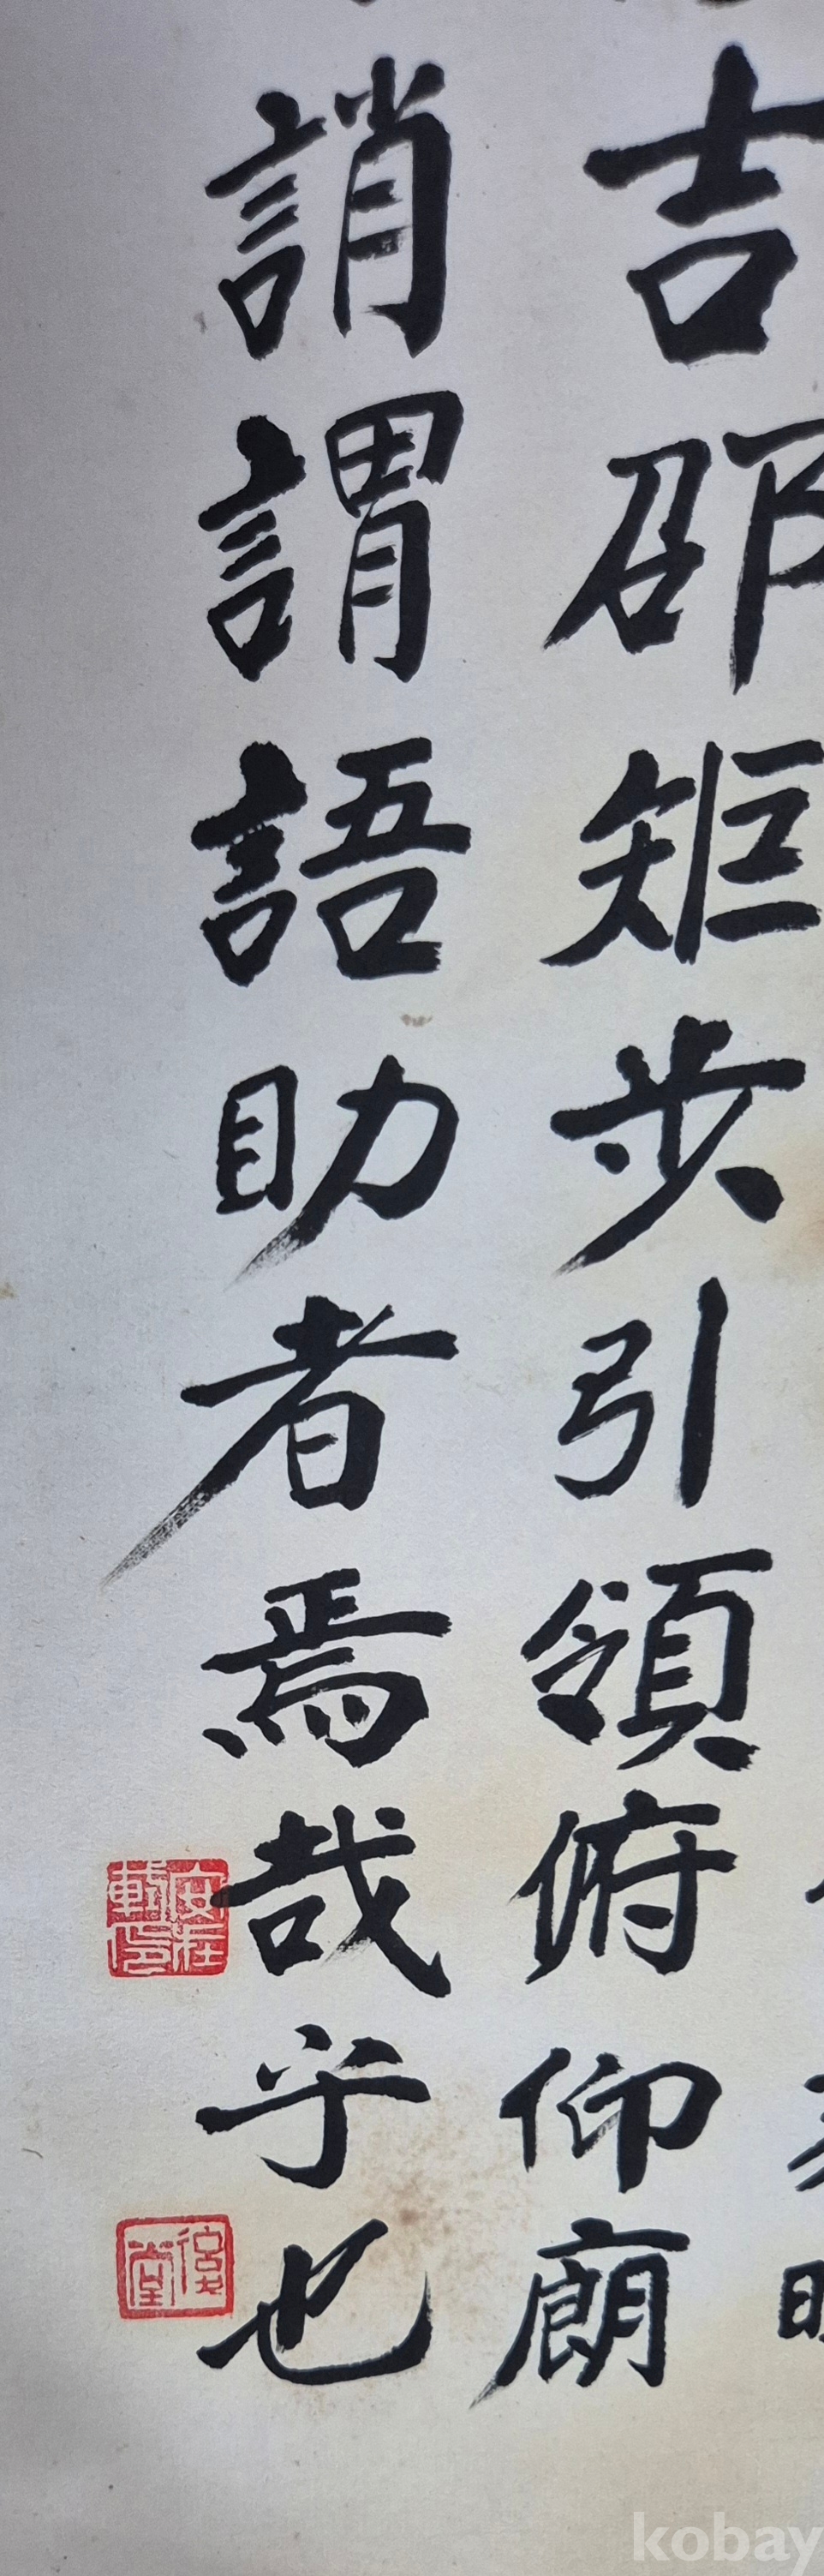 吉邵矩步引領俯仰廊
誚謂語助者焉哉乎也
kobay